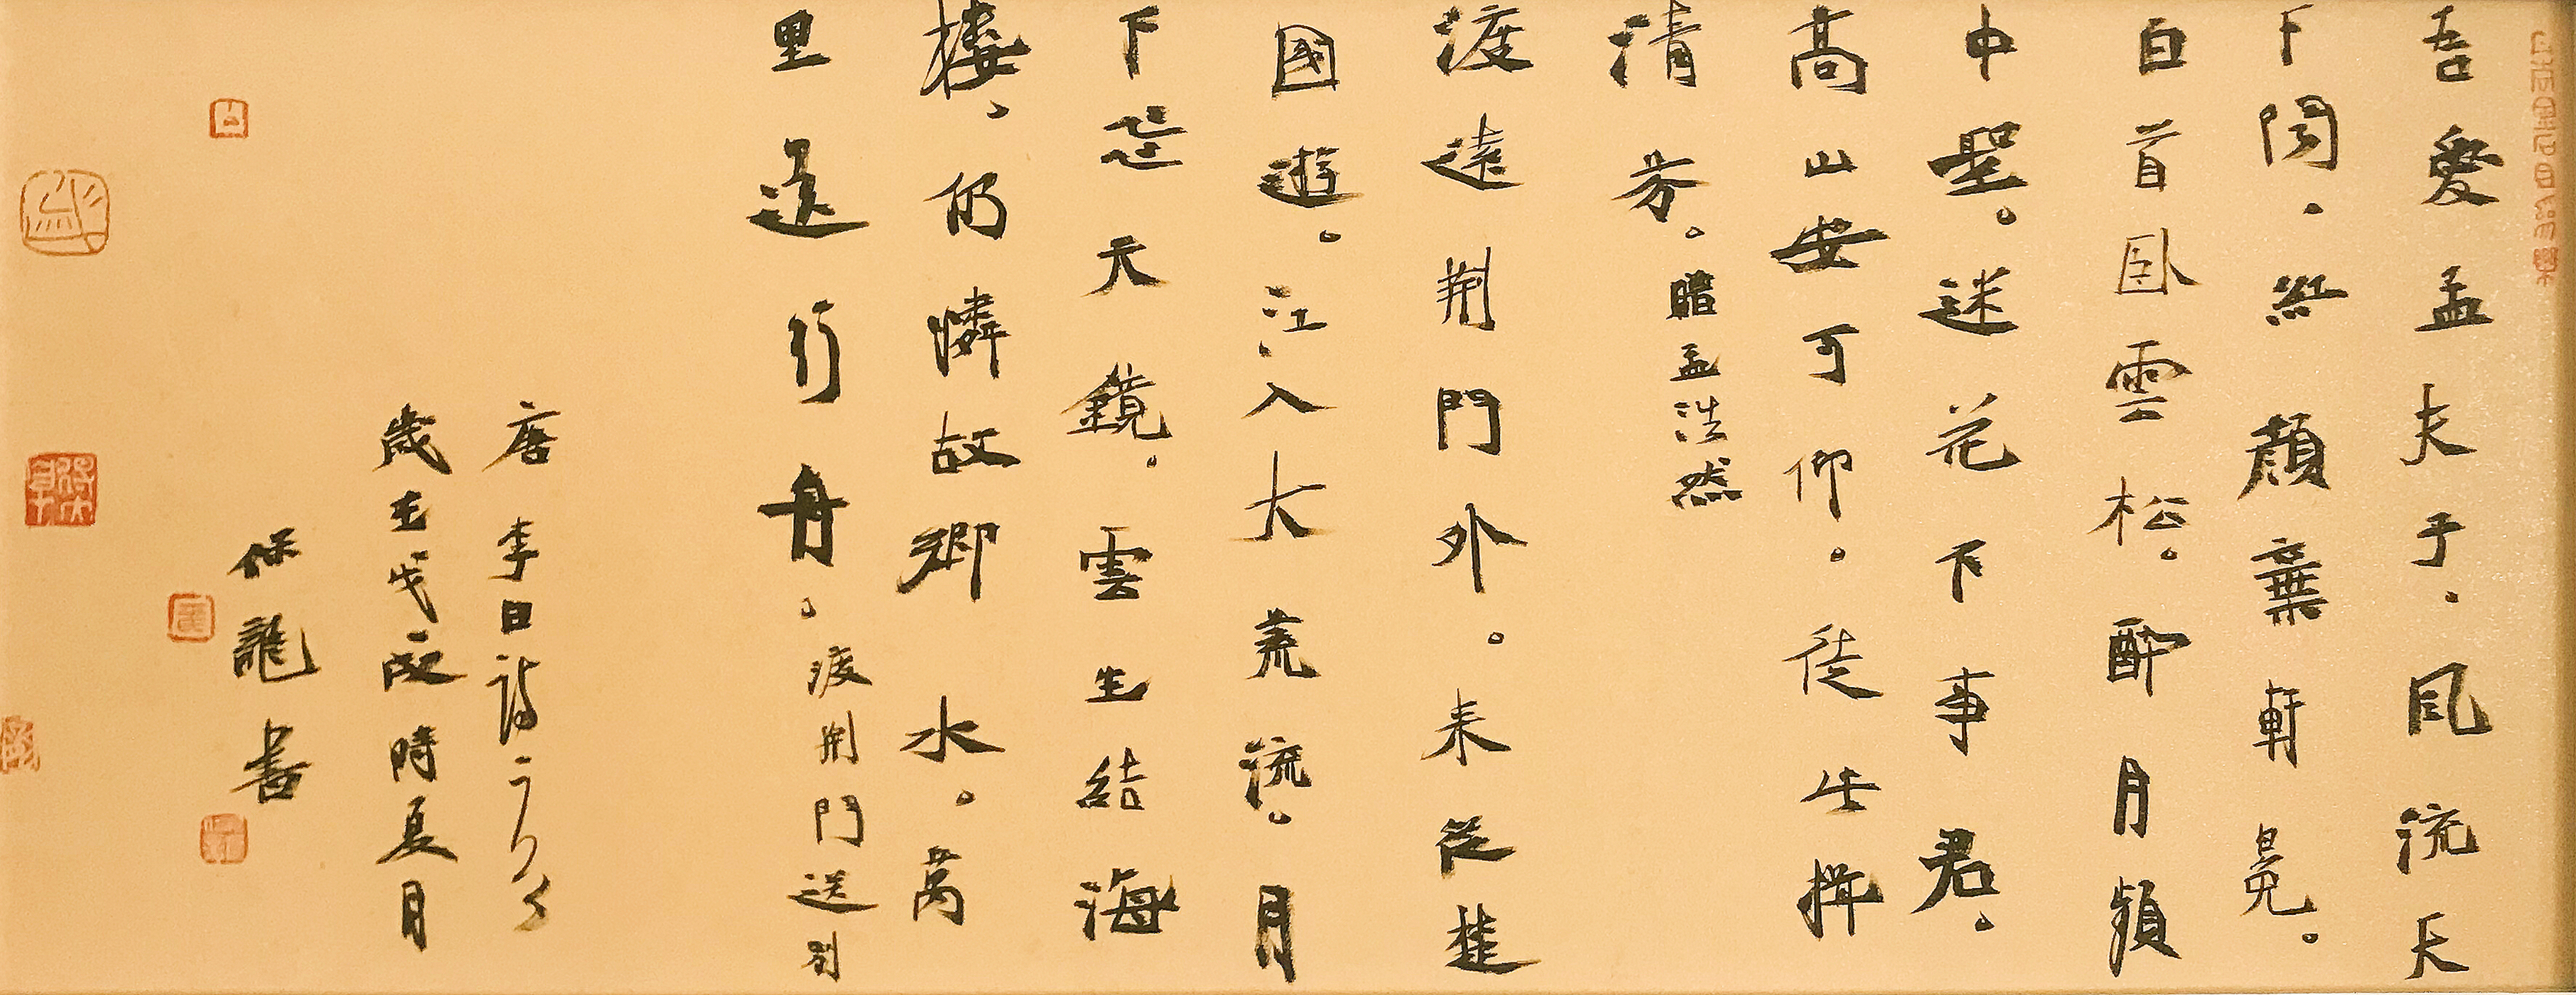 吾愛孟夫子。風流天
下聞。紅顏棄軒冕。
白首臥雲松。醉月頻
中聖。迷花不事君。
高山安可仰。徒此揖
清芬。贈孟浩然
渡遠荆門外。来從楚
國遊。江入大荒流。月
下飛天鏡。雲生結海
樓。仍憐故鄉水。萬
里送行舟。渡荆門送別
唐李白詩二
歲在戊戌時夏月
保龍書